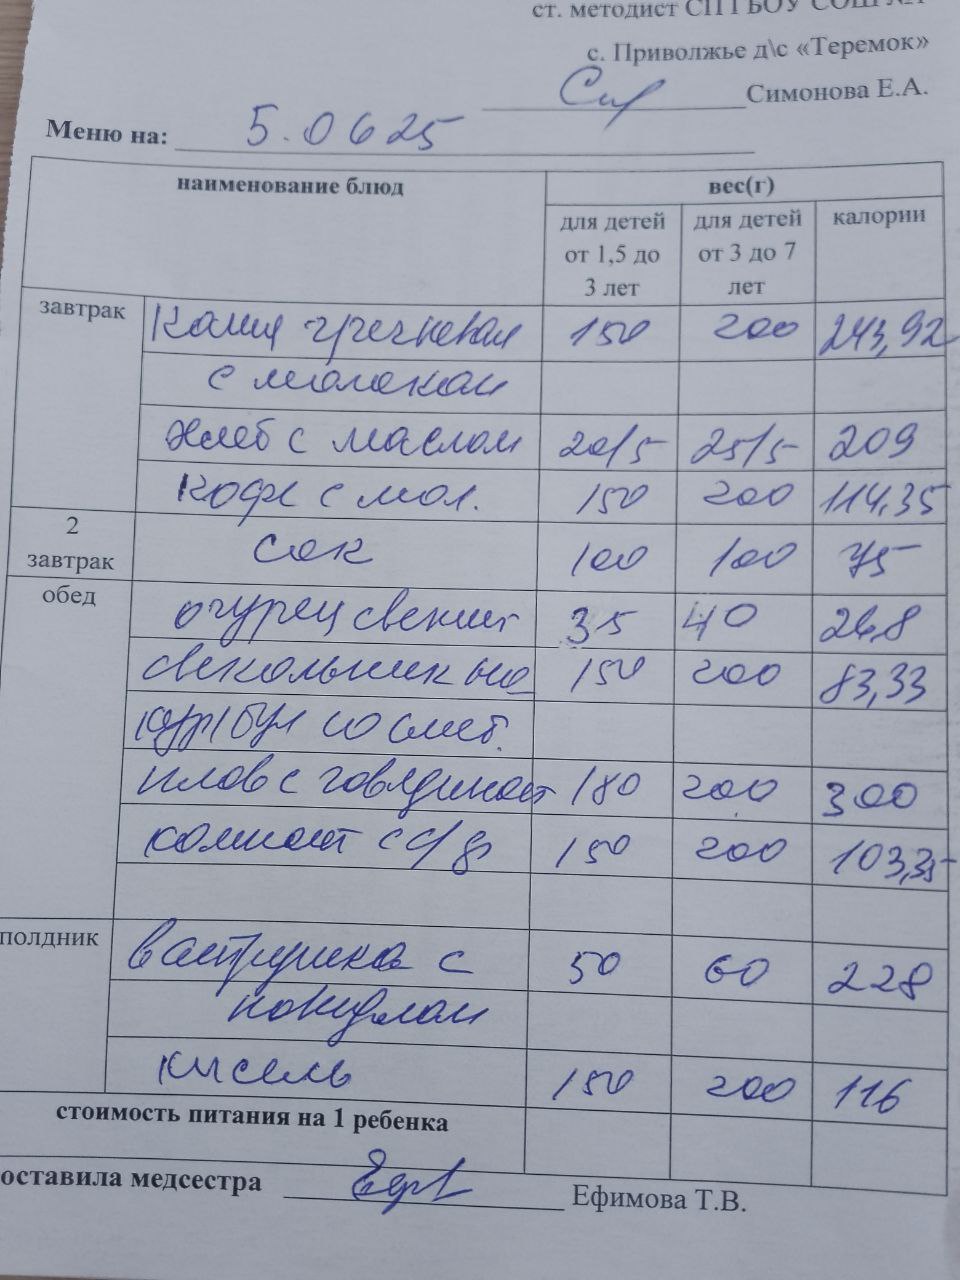 ст. методист СП ГБОУ СОШ №1
с. Приволжье д\с «Теремок»
Симонова Е.А.
Меню на: 5.06 25
наименование блюд вес(г)
для детей от 1,5 до 3 лет для детей от 3 до 7 лет калории
завтрак Каша гречневая 150 200 243,92
с молоком
хлеб с маслом 20/5 25/5 209
Кофе с мол. 150 200 114,35
2 завтрак сок 100 100 75
обед огурец свежий 35 40 26,8
свекольник на 150 200 83,33
кур бул со смет.
плов с говядиной 180 200 300
компот с с/ф 150 200 103,35
полдник ватрушка с 50 60 228
повидлом
кисель 150 200 116
стоимость питания на 1 ребенка
оставила медсестра Ефимова Т.В.